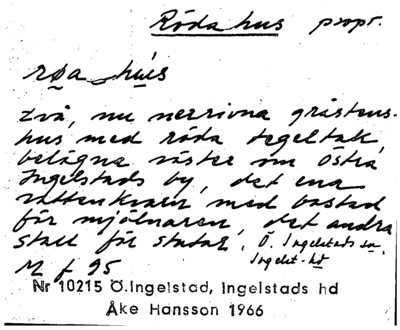 Röda hus propr.
røa hús
två, nu nerrivna gråstens-
hus med röda tegeltak,
belägna väster om Östra
Ingelstads by, det ena
vattenkvarn med bostad
för mjölnaren, det andra
stall för statar. Ö. Ingelstads sn
Ingelst. hd
M f 95
Nr 10215 Ö.Ingelstad, Ingelstads hd
Åke Hansson 1966